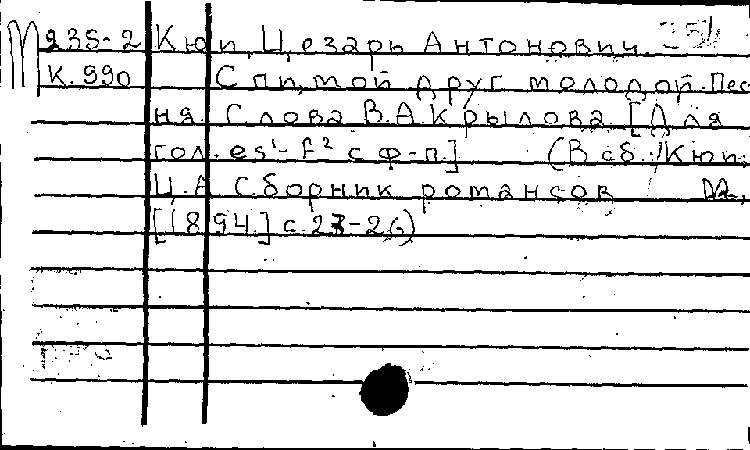 М 235-2 Кюи, Цезарь Антонович. 354
К.990 Спи, мой друг молодой. Пес-
ня. Слова В.А. Крылова. [Для
гол. es¹-f² с ф-п.] (В сб.: Кюи,
Ц.А. Сборник романсов М.,
[1894] с. 23-26)